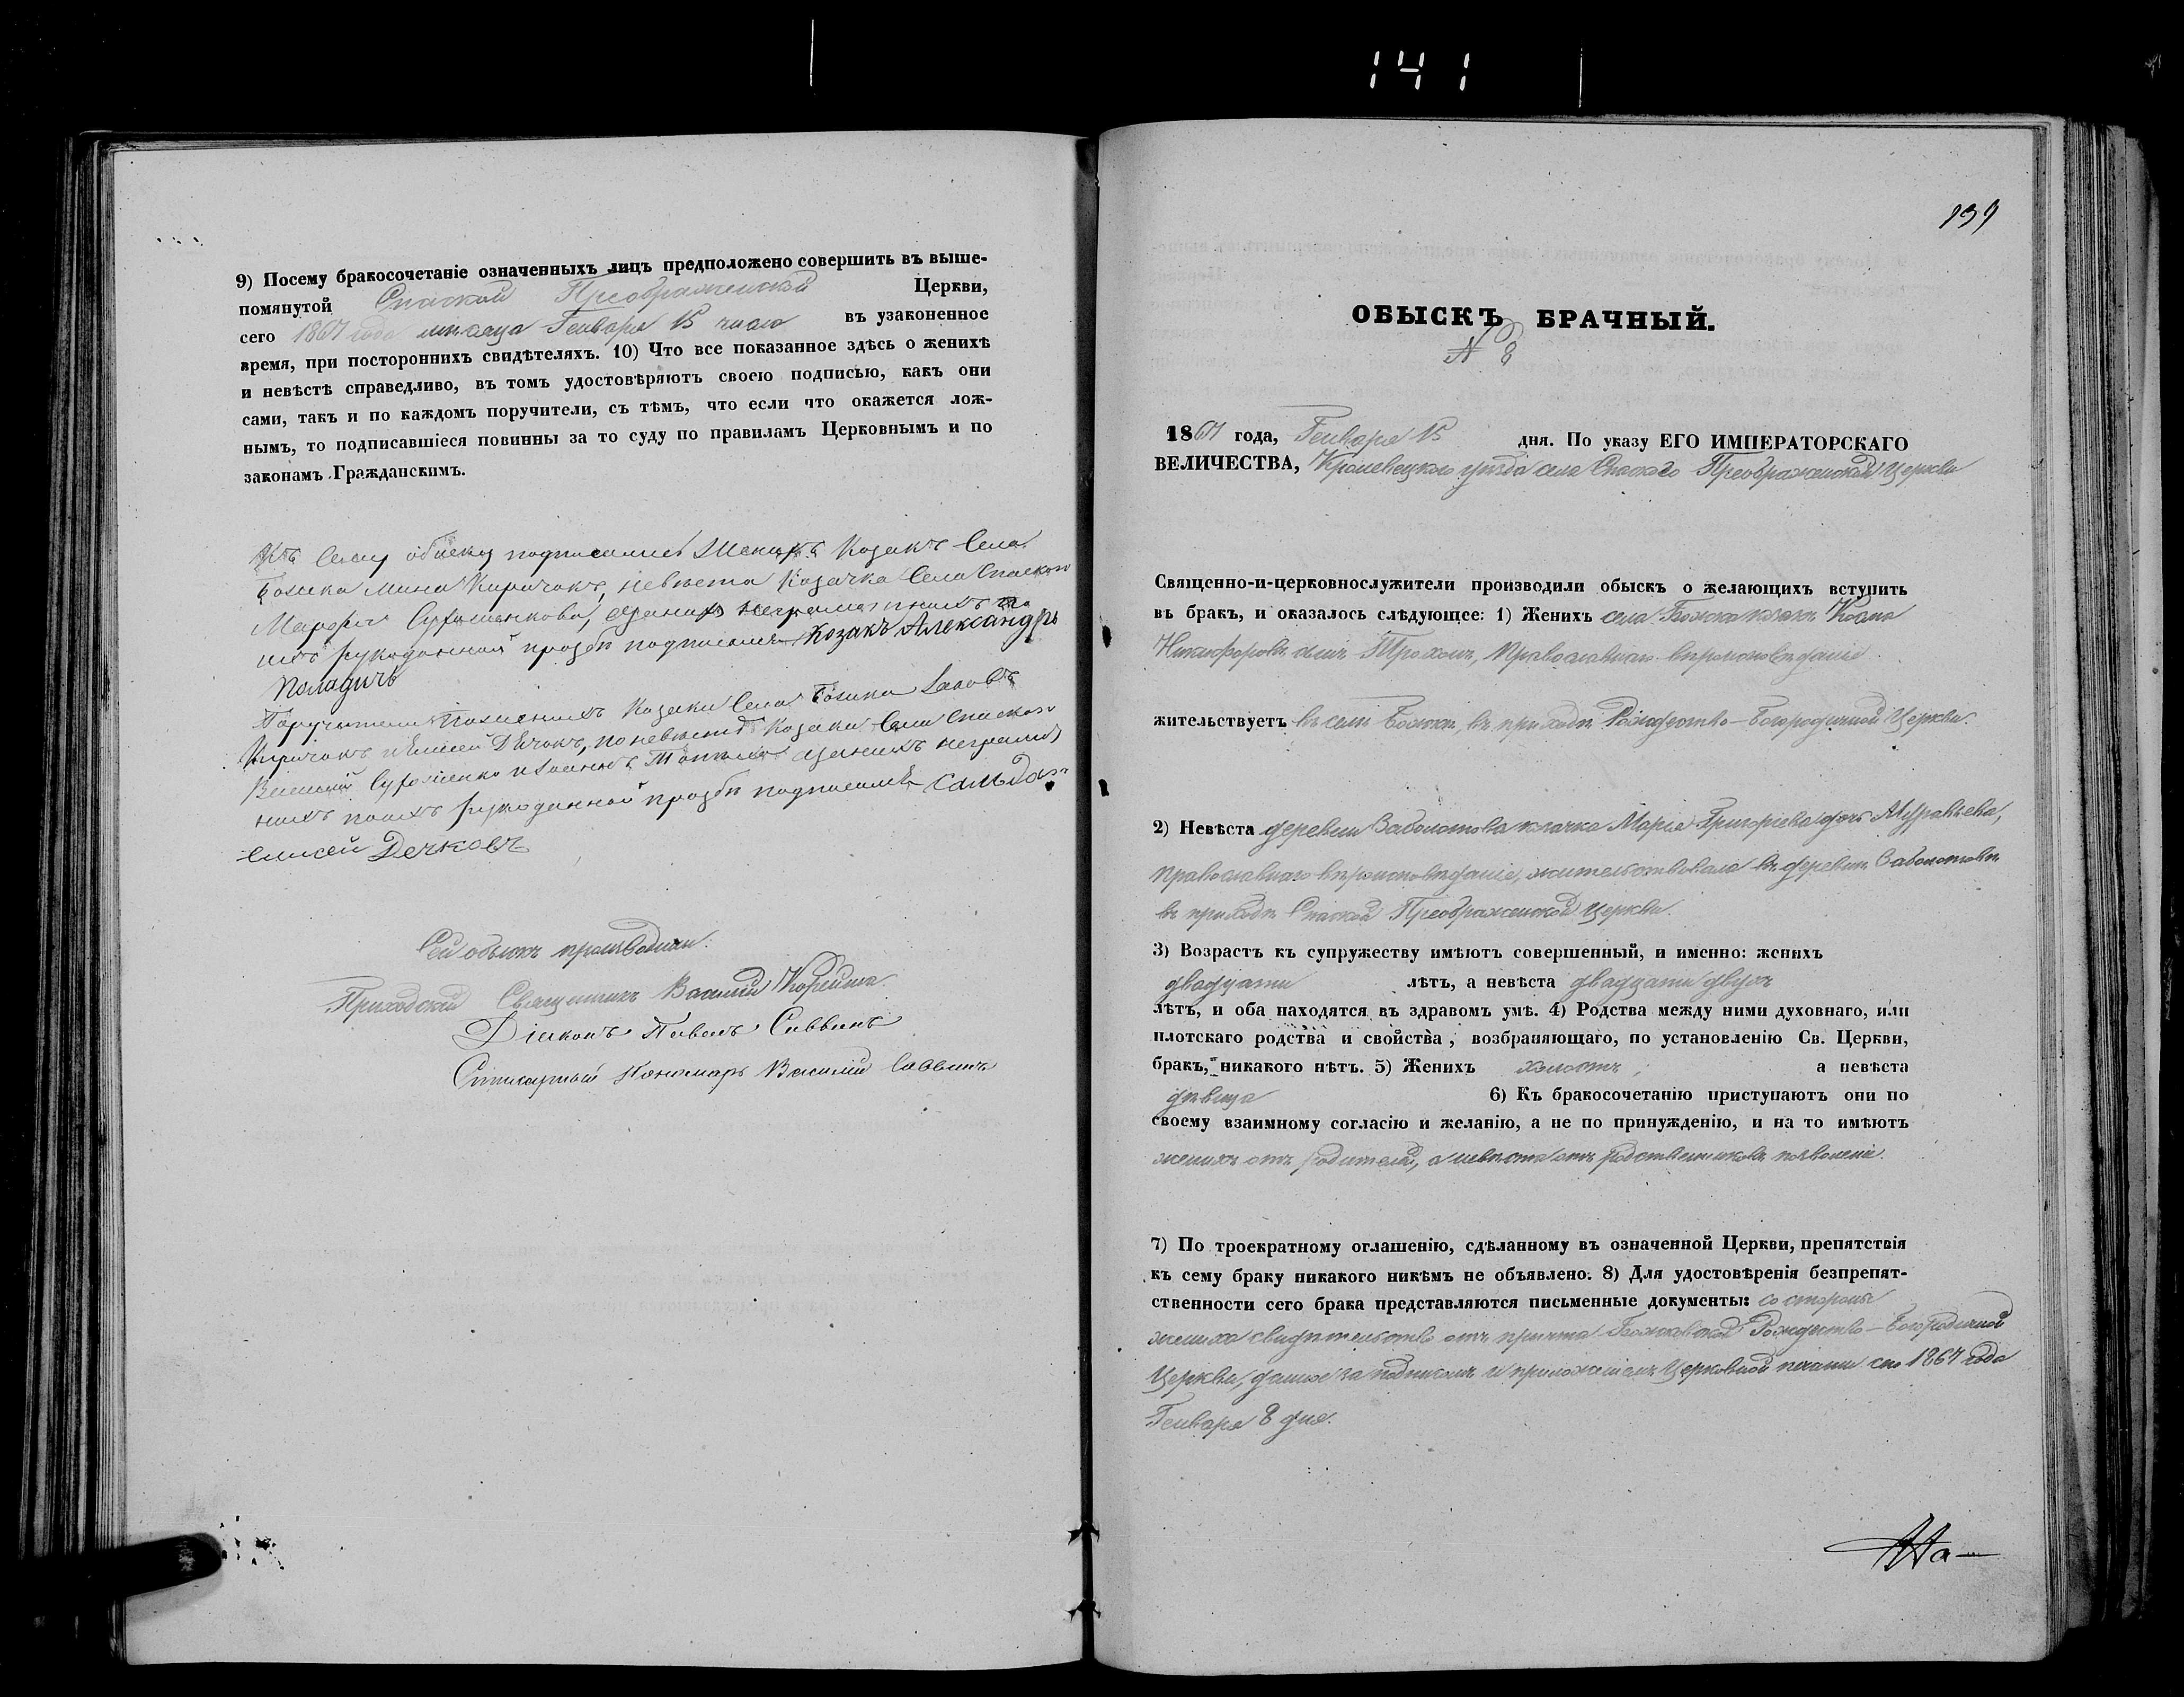 141
9) Посему бракосочетаніе означенныхъ лицъ предположено совершить въ выше-
помянутой Спаской Преображенской Церкви,
сего 1867 года месяца Генваря 15 число въ узаконенное
время, при постороннихъ свидѣтеляхъ. 10) Что все показанное здѣсь о женихѣ
и невѣстѣ справедливо, въ томъ удостовѣряютъ своею подписью, какъ они
сами, такъ и по каждомъ поручители, съ тѣмъ, что если что окажется лож-
нымъ, то подписавшіеся повинны за то суду по правиламъ Церковнымъ и по
законамъ Гражданскимъ.
Къ сему обыску подписались Женихъ Козакъ Села
Божка Мина Киричокъ, невѣста Козачка Села Спаскаго
Марфа неграмотныхъ по
ихъ рукоданной прозбѣ подписался Козакъ Александръ
Паладичъ
Поручители По женихѣ Козаки Села Божка
Киричокъ и Елисей Дѣчокъ, по невѣстѣ Козаки Села Спаскаго
Василій
рукоданной прозбѣ подписался
Елисей Дечковъ
Сей обыскъ производили:
Приходскій Священникъ Василій Корейша
Діаконъ Павелъ Саввичъ
Пономарь Василій Саввичъ
139
ОБЫСКЪ БРАЧНЫЙ.
N 8
1867 года, Генваря 15 дня. По указу ЕГО ИМПЕРАТОРСКАГО
ВЕЛИЧЕСТВА, Кролевецкого уѣзда села Спаского Преображенской Церкви
Священно-и-церковнослужители производили обыскъ о желающихъ вступить
въ бракъ, и оказалось слѣдующее: 1) Женихъ села Божка козакъ Косма
Никифоровъ сынъ Трохонъ, Православнаго вѣроисповѣданія
жительствуетъ въ селѣ Божкѣ, въ приходѣ Рождество-Богородичной Церкви.
2) Невѣста деревни Заболотова козачка Марія Григоріева дочь Муравьева,
православнаго вѣроисповѣданія, жительствовала въ деревнѣ Заболотовѣ
въ приходѣ Спаской Преображенской Церкви.
3) Возрастъ къ супружеству имѣютъ совершенный, и именно: женихъ
двадцати лѣтъ, а невѣста двадцати двухъ
лѣтъ, и оба находятся въ здравомъ умѣ. 4) Родства между ними духовнаго, или
плотскаго родства и свойства, возбраняющаго, по установленію Св. Церкви,
бракъ, никакого нѣтъ. 5) Женихъ холостъ, а невѣста
дѣвица 6) Къ бракосочетанію приступаютъ они по
своему взаимному согласію и желанію, а не по принужденію, и на то имѣютъ
женихъ отъ родителей, а невѣста отъ родственниковъ позволеніе.
7) По троекратному оглашенію, сдѣланному въ означенной Церкви, препятствія
къ сему браку никакого никѣмъ не объявлено. 8) Для удостовѣренія безпрепят-
ственности сего брака представляются письменные документы: со стороны
жениха свидѣтельство отъ причта Божковской Рождество-Богородичной
Церкви, данное за подписомъ и приложеніемъ Церковной печати сего 1867 года
Генваря 8 дня.